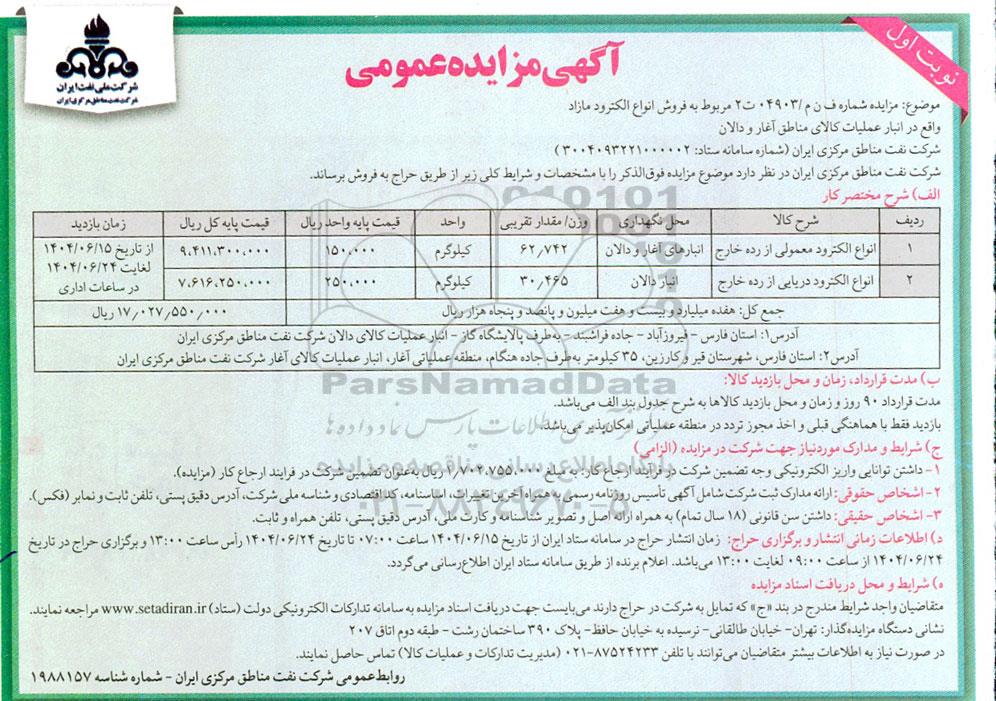 نوبت اول
شرکت ملی نفت ایران
شرکت نفت مناطق مرکزی ایران
آگهی مزایده عمومی
موضوع: مزایده شماره ف ن م /۰۴۹۰۳ ت۲ مربوط به فروش انواع الکترود مازاد
واقع در انبار عملیات کالای مناطق آغار و دالان
شرکت نفت مناطق مرکزی ایران (شماره سامانه ستاد: ۳۰۰۴۰۹۳۲۲۱۰۰۰۰۰۲ )
شرکت نفت مناطق مرکزی ایران در نظر دارد موضوع مزایده فوق‌الذکر را با مشخصات و شرایط کلی زیر از طریق حراج به فروش برساند.
الف) شرح مختصر کار
ردیف شرح کالا محل نگهداری وزن/ مقدار تقریبی واحد قیمت پایه واحد ریال قیمت پایه کل ریال زمان بازدید
۱ انواع الکترود معمولی از رده خارج انبارهای آغار و دالان ۶۲٫۷۴۲ کیلوگرم ۱۵۰٫۰۰۰ ۹٫۴۱۱٫۳۰۰٫۰۰۰ از تاریخ ۱۴۰۴/۰۶/۱۵
لغایت ۱۴۰۴/۰۶/۲۴
در ساعات اداری
۲ انواع الکترود دریایی از رده خارج انبار دالان ۳۰٫۴۶۵ کیلوگرم ۲۵۰٫۰۰۰ ۷٫۶۱۶٫۲۵۰٫۰۰۰
جمع کل: هفده میلیارد و بیست و هفت میلیون و پانصد و پنجاه هزار ریال ۱۷٫۰۲۷٫۵۵۰٫۰۰۰ ریال
آدرس۱: استان فارس - فیروزآباد - جاده فراشبند - به‌طرف پالایشگاه گاز - انبار عملیات کالای دالان شرکت نفت مناطق مرکزی ایران
آدرس۲: استان فارس، شهرستان قیر و کارزین، ۳۵ کیلومتر به‌طرف جاده هنگام، منطقه عملیاتی آغار، انبار عملیات کالای آغار شرکت نفت مناطق مرکزی ایران
ParsNamadData
ب) مدت قرارداد، زمان و محل بازدید کالا:
مدت قرارداد ۹۰ روز و زمان و محل بازدید کالاها به شرح جدول بند الف می‌باشد.
بازدید فقط با هماهنگی قبلی و اخذ مجوز تردد در منطقه عملیاتی امکان‌پذیر می‌باشد.
ج) شرایط و مدارک موردنیاز جهت شرکت در مزایده (الزامی)
۱- داشتن توانایی واریز الکترونیکی وجه تضمین شرکت در فرایند ارجاع کار: به مبلغ ۱٫۷۰۲٫۷۵۵٫۰۰۰ ریال به‌عنوان تضمین شرکت در فرایند ارجاع کار (مزایده).
۲- اشخاص حقوقی: ارائه مدارک ثبت شرکت شامل آگهی تأسیس روزنامه رسمی به همراه آخرین تغییرات، اساسنامه، کد اقتصادی و شناسه ملی شرکت، آدرس دقیق پستی، تلفن ثابت و نمابر (فکس).
۳- اشخاص حقیقی: داشتن سن قانونی (۱۸ سال تمام) به همراه ارائه اصل و تصویر شناسنامه و کارت ملی، آدرس دقیق پستی، تلفن همراه و ثابت.
د) اطلاعات زمانی انتشار و برگزاری حراج: زمان انتشار حراج در سامانه ستاد ایران از تاریخ ۱۴۰۴/۰۶/۱۵ ساعت ۰۷:۰۰ تا تاریخ ۱۴۰۴/۰۶/۲۴ رأس ساعت ۱۳:۰۰ و برگزاری حراج در تاریخ
۱۴۰۴/۰۶/۲۴ از ساعت ۰۹:۰۰ لغایت ۱۳:۰۰ می‌باشد. اعلام برنده از طریق سامانه ستاد ایران اطلاع‌رسانی می‌گردد.
ه) شرایط و محل دریافت اسناد مزایده
متقاضیان واجد شرایط مندرج در بند «ج» که تمایل به شرکت در حراج دارند می‌بایست جهت دریافت اسناد مزایده به سامانه تدارکات الکترونیکی دولت (ستاد) www.setadiran.ir مراجعه نمایند.
نشانی دستگاه مزایده‌گذار: تهران- خیابان طالقانی- نرسیده به خیابان حافظ- پلاک ۳۹۰ ساختمان رشت - طبقه دوم اتاق ۲۰۷
در صورت نیاز به اطلاعات بیشتر متقاضیان می‌توانند با تلفن ۸۷۵۲۴۲۳۳-۰۲۱ (مدیریت تدارکات و عملیات کالا) تماس حاصل نمایند.
روابط عمومی شرکت نفت مناطق مرکزی ایران - شماره شناسه ۱۹۸۸۱۵۷